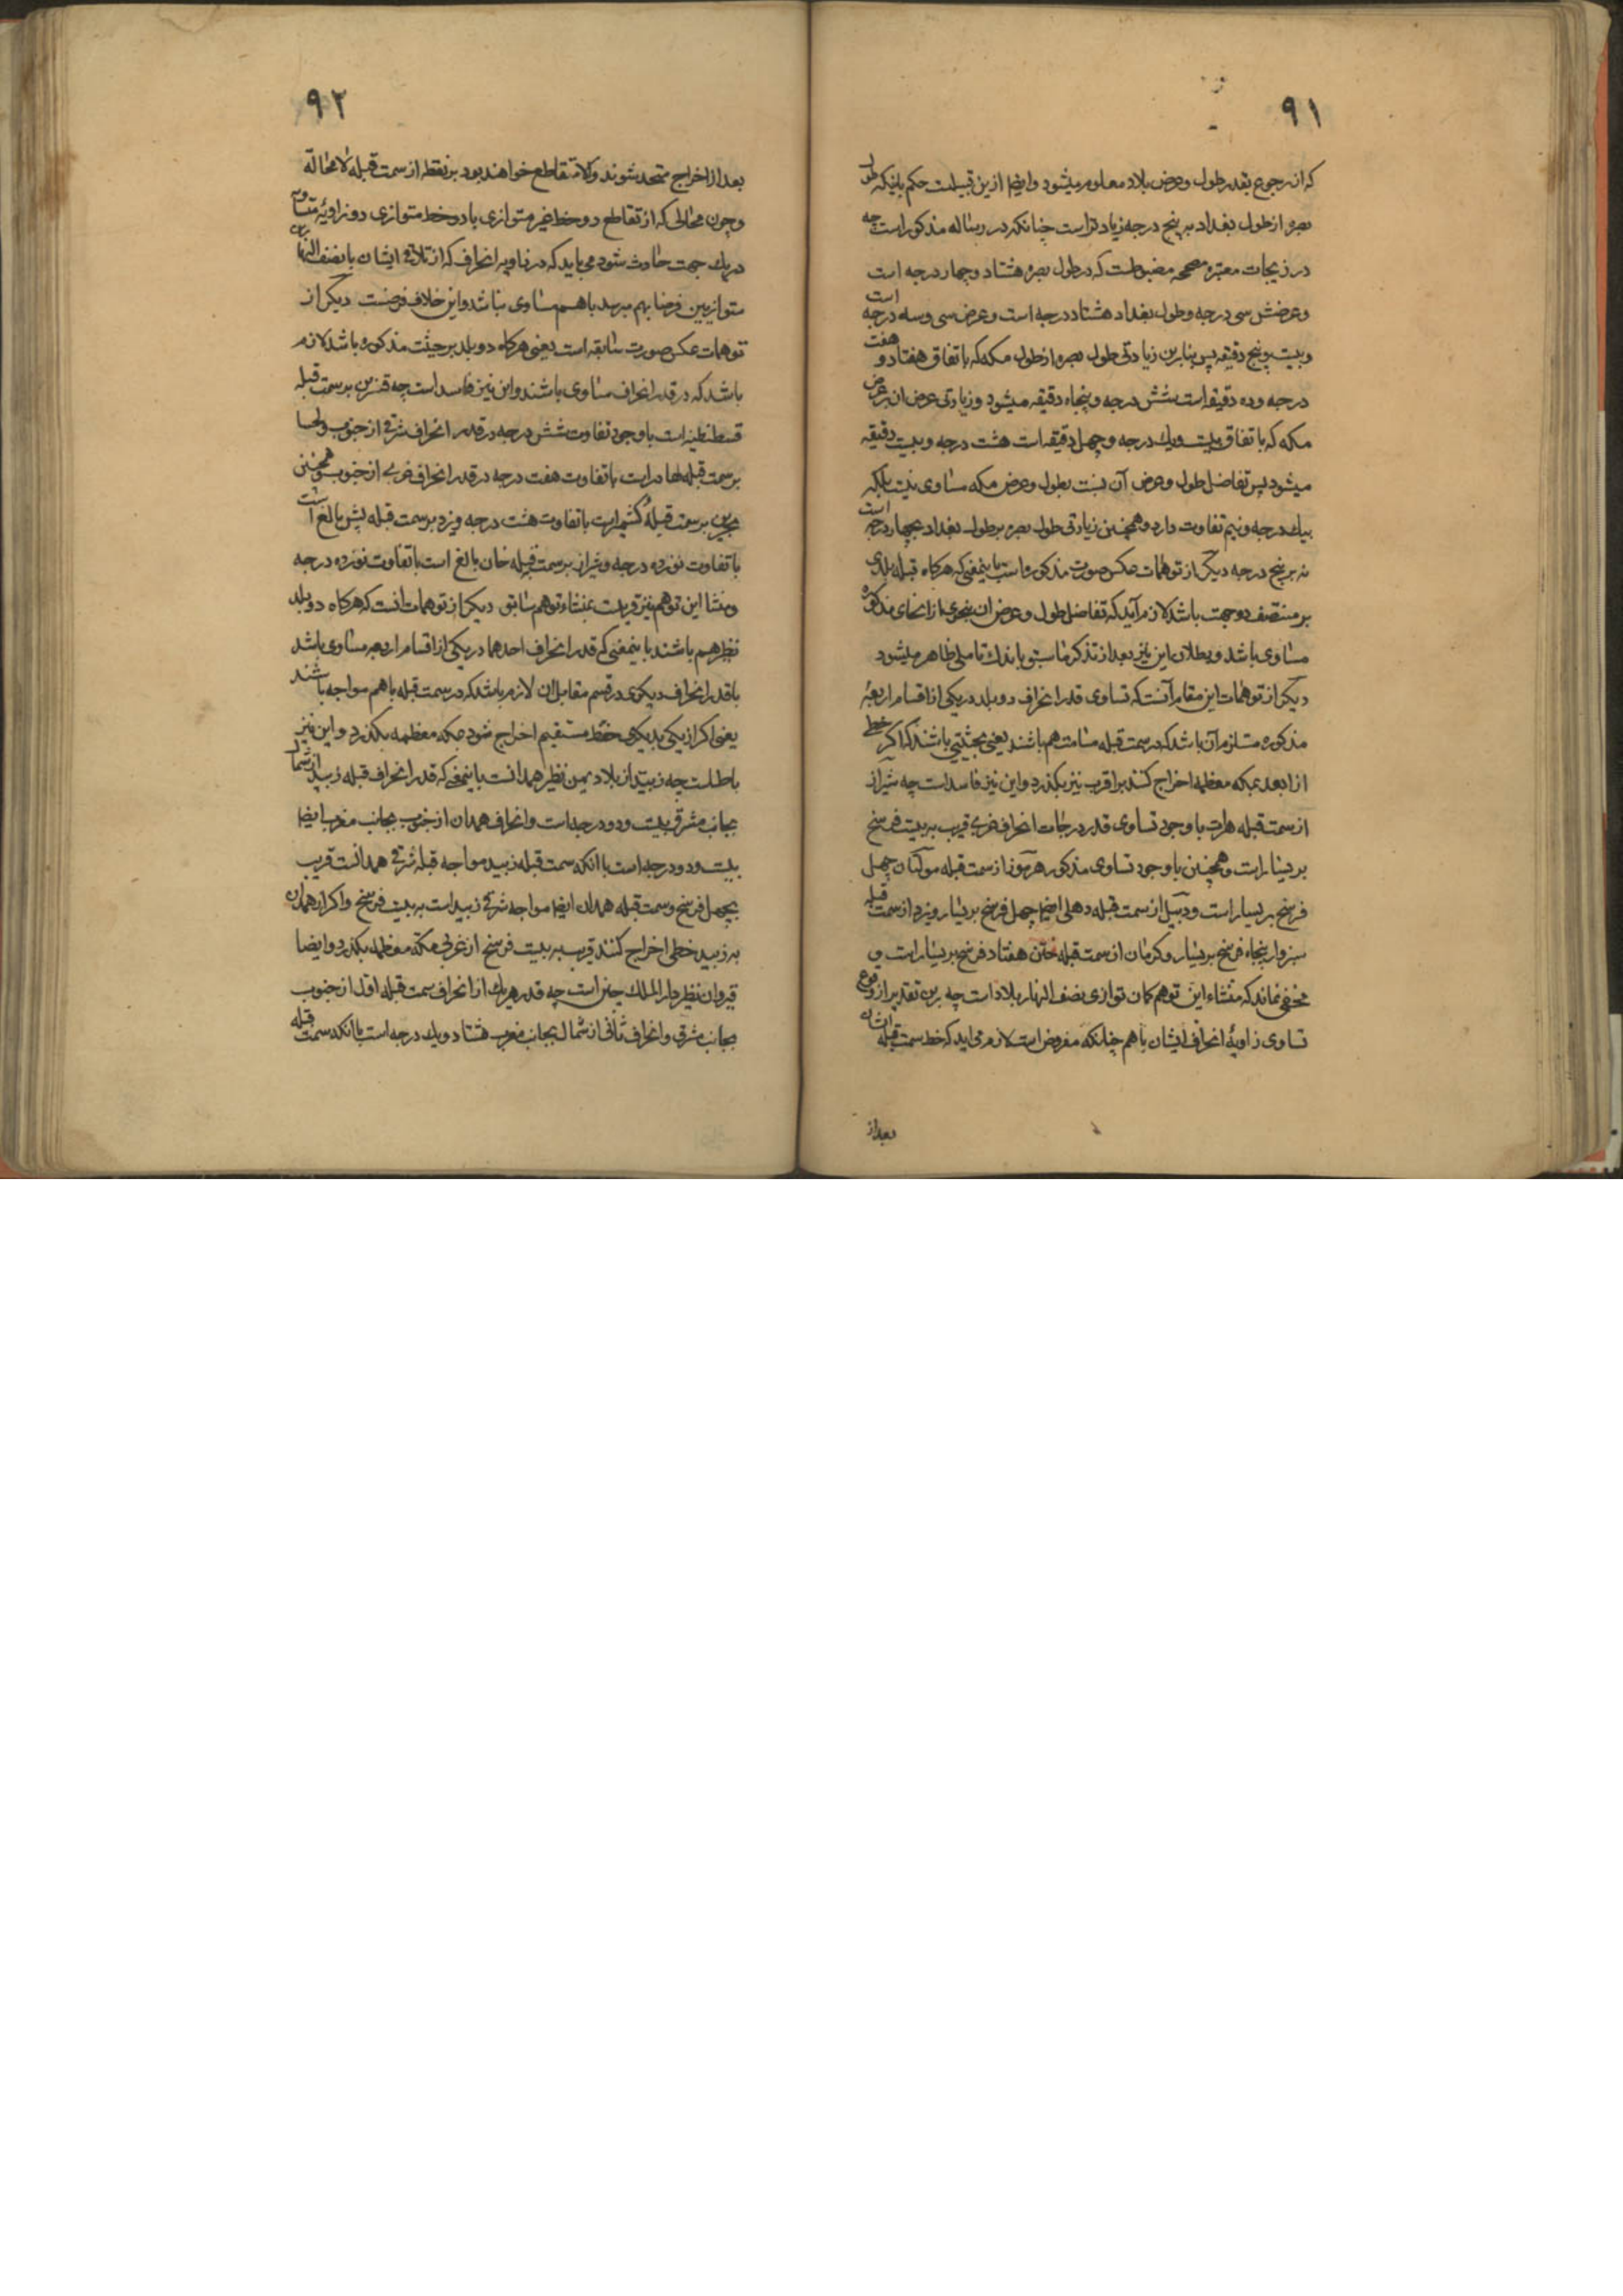 ۹۱
که از رجوع بقدر طول و عرض بلاد معلوم میشود و ایضا ازین قبیلست حکم باینکه طول
بصره از طول بغداد به پنج درجه زیادتر است چنانکه در رساله مذکور است چه
در زیجات معتبره مصححه مضبوطست که در طول بصره هشتاد و چهار درجه است
و عرضش سی درجه و طول بغداد هشتاد درجه است و عرض سی و سه درجه است
و بیست و پنج دقیقه پس بنابرین زیادتی طول بصره از طول مکه که باتفاق هفتاد و هفت
درجه و ده دقیقه است شش درجه و پنجاه دقیقه میشود و زیادتی عرض ان بر عرض
مکه که باتفاق بیست و یک درجه و چهل دقیقه است هشت درجه و بیست دقیقه
میشود پس تفاضل طول و عرض آن نسبت بطول و عرض مکه مساوی نیست بلکه
بیک درجه و نیم تفاوت دارد و همچنین زیادتی طول بصره بر طول بغداد بچهار درجه است
نه بر پنج درجه دیگر از توهمات عکس صورت مذکوره است باینمعنی که هرگاه قبله بلدی
بر منتصف دو جهت باشد لازم آید که تفاضل طول و عرض ان بنحوی از انحای مذکوره
مساوی باشد و بطلان این نیز بعد از تذکر ما سبق باندک تاملی ظاهر میشود
دیگر از توهمات این مقام آنست که تساوی قدر انحراف دو بلد در یکی از اقسام اربعهٔ
مذکوره مستلزم آن باشد که در سمت قبله مسامت هم باشند یعنی بحیثیتی باشند که اگر خطی
از ابعد بمکه معظمه اخراج کنند بر اقرب نیز بگذرد و این نیز فاسد است چه شیراز
از سمت قبله هرات با وجود تساوی قدر درجات انحراف غربی قریب به بیست فرسخ
بر یسار است و همچنین با وجود تساوی مذکور هرموز از سمت قبله مولتان چهل
فرسخ بر یسار است و دبیل از سمت قبله دهلی ایضا چهل فرسخ بر یسار و یزد از سمت قبله
سبزوار پنجاه فرسخ بر یسار و کرمان از سمت قبله ختن هفتاد فرسخ بر یسار است و
مخفی نماند که منشاء این توهم کمان توازی نصف النهار بلاد است چه برین تقدیر از وقوع
تساوی زاویهٔ انحراف ایشان با هم چنانکه مفروض است لازم می اید که خط سمت قبله ایشان
بعد از
۹۲
بعد از اخراج متحد شوند والا متقاطع خواهند بود بر نقطه از سمت قبله لا محالة
و چون محالی که از تقاطع دو خط غیر متوازی با دو خط متوازی دو زاویهٔ متساوی
در یک جهت حادث شود می باید که در زاویه انحراف که از تلاقی ایشان با نصف النهارین
متوازیین فرضا بهم میرسد با هم مساوی نباشد و این خلاف فرضست دیگر از
توهمات عکس صورت سابقه است یعنی هرگاه دو بلد بر حیثیت مذکوره باشد لازم
باشد که در قدر انحراف مساوی باشند و این نیز فاسد است چه قنسرین بر سمت قبله
قسطنطنیه است با وجود تفاوت شش درجه در قدر انحراف شرقی از جنوب و لحسا
بر سمت قبله لهاور است با تفاوت هفت درجه در قدر انحراف غربی از جنوب همچنین
بحرین بر سمت قبلهٔ کشمیر است با تفاوت هشت درجه و یزد بر سمت قبله بیش بالغ است
با تفاوت نوزده درجه و شیراز بر سمت قبله خان بالغ است با تفاوت نوزده درجه
و منشا این توهم نیز قریب بمنشاء توهم سابق دیگر از توهمات انست که هرگاه دو بلد
نظیر هم باشند باینمعنی که قدر انحراف احدهما در یکی از اقسام اربعه مساوی باشد
با قدر انحراف دیگری در قسم مقابل ان لازم باشد که در سمت قبله با هم مواجه باشند
یعنی اگر از یکی بدیگری خط مستقیم اخراج شود بمکه معظمه بگذرد و این نیز
باطلست چه زبید از بلاد یمن نظیر همدانست باینمعنی که قدر انحراف قبله زبید از شمال
بجانب مشرق بیست و دو درجه است و انحراف همدان از جنوب بجانب مغرب ایضا
بیست و دو درجه است با انکه سمت قبله زبید مواجه قبله شرقی همدانست قریب
بچهل فرسخ و سمت قبله همدان ایضا مواجه شرقی زبید است به بیست فرسخ و اگر از همدان
به زبید خطی اخراج کنند قریب به بیست فرسخ از غربی مکه معظمه بگذرد و ایضا
قیروان نظیر دار الملک چین است چه قدر هر یک از انحراف سمت قبله اول از جنوب
بجانب مشرق و انحراف ثانی از شمال بجانب مغرب هشتاد و یک درجه است با انکه سمت قبله